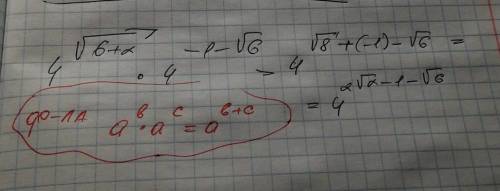 4^{\sqrt{6+2}} · 4^{-1-√6} = 4^{√8+(-1)-√6} =
= 4^{2√2-1-√6}
ф-ла a^b · a^c = a^{b+c}